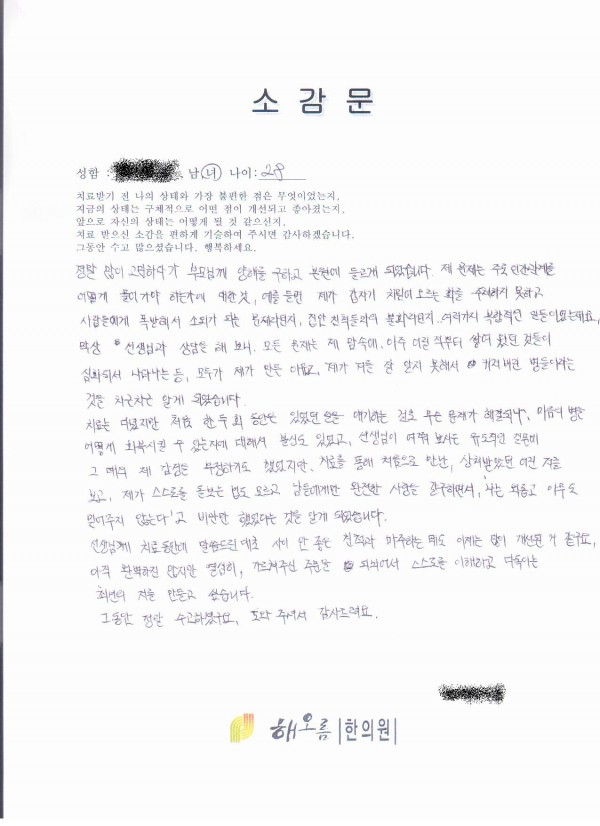 소 감 문
성함 : 남 녀 나이: 28
치료받기 전 나의 상태와 가장 불편한 점은 무엇이었는지,
지금의 상태는 구체적으로 어떤 점이 개선되고 좋아졌는지,
앞으로 자신의 상태는 어떻게 될 것 같으신지,
치료 받으신 소감을 편하게 기술하여 주시면 감사하겠습니다.
그동안 수고 많으셨습니다. 행복하세요.
정말 많이 고민하다가 부모님께 양해를 구하고 본원에 들르게 되었습니다. 제 문제는 주로 인간관계를
어떻게 풀어가야 하는가에 대한 것, 예를 들면 제가 갑자기 치밀어오르는 화를 주체하지 못하고
사람들에게 폭발해서 소외가 되는 문제라던지, 집안 친척들과의 불화라던지.. 여러가지 복합적인 일들이었는데요,
막상 선생님과 상담을 해 보니, 모든 문제는 제 맘속에, 아주 어린 적부터 쌓여 왔던 것들이
심화되서 나타나는 등, 모두가 제가 만든 아픔, 제가 저를 잘 알지 못해서 커져버린 병들이라는
것을 차근차근 알게 되었습니다.
치료는 다녔지만 처음 한두 회 동안은 있었던 일을 얘기하는 걸로 무슨 문제가 해결되나, 마음의 병은
어떻게 회복시킬 수 있는지에 대해서 불신도 있었고, 선생님이 여쭤 보시는 유도적인 질문에
그 때의 제 감정을 부정하기도 했었지만, 치료를 통해 처음으로 만난, 상처받았던 어린 저를
보고, 제가 스스로를 돌보는 법도 모르고 남들에게만 완전한 사랑을 갈구하면서, '나는 외롭고 아무도
믿어주지 않는다'고 비관만 했었다는 것을 알게 되었습니다.
선생님께 치료동안에 말씀드린대로 사이 안 좋은 친척과 마주하는 태도 이제는 많이 개선된 거 같구요,
아직 완벽하진 않지만 열심히, 가르쳐주신 주문을 되뇌어서 스스로를 이해하고 다독이는
최선의 저를 만들고 싶습니다.
그동안 정말 수고하셨구요, 도와 주셔서 감사드려요.
해오름 한의원